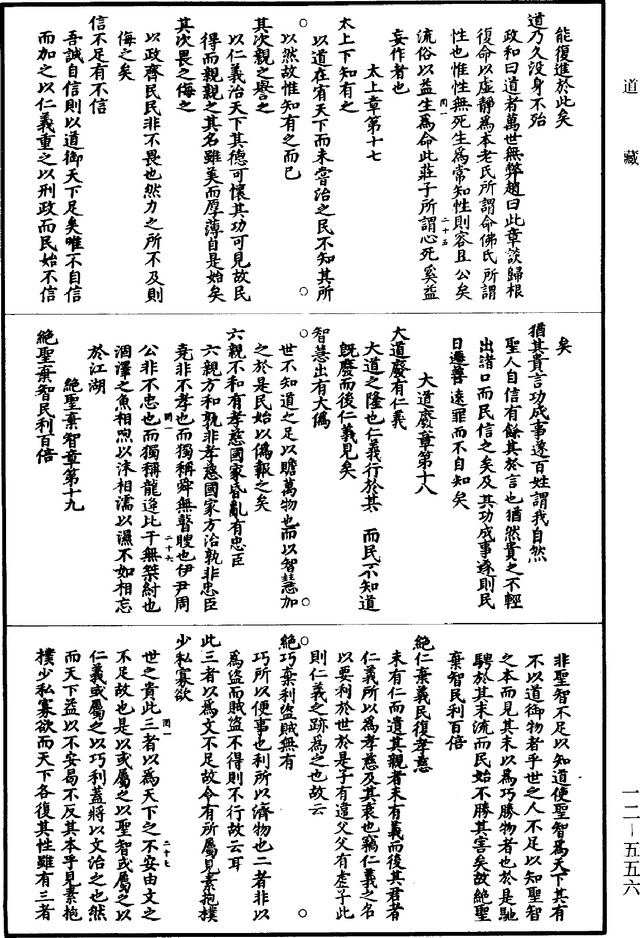 道藏
能復進於此矣
道乃久没身不殆
政和曰道者萬世無弊趙曰此章談歸根
復命以虛静爲本老氏所謂命佛氏所謂
性也惟性無死生爲常知性則容且公矣
流俗以益生爲命此莊子所謂心死奚益
妄作者也
太上章第十七
太上下知有之
以道在宥天下而未嘗治之民不知其所
以然故惟知有之而已
其次親之譽之
以仁義治天下其德可懷其功可見故民
得而親譽之其名雖美而厚薄自是始矣
其次畏之侮之
以政齊民民非不畏也然力之所不及則
侮之矣
信不足有不信
吾誠自信則以道御天下足矣唯不自信
而加之以仁義重之以刑政而民始不信
矣
猶其貴言功成事遂百姓謂我自然
聖人自信有餘其於言也猶然貴之不輕
出諸口而民信之矣及其功成事遂則民
日遷善遠罪而不自知矣
大道廢章第十八
大道廢有仁義
大道之隆也仁義行於其 而民不知道
旣廢而後仁義見矣
智慧出有大僞
世不知道之足以贍萬物也而以智慧加
之於是民始以僞報之矣
六親不和有孝慈國家昏亂有忠臣
六親方和孰非孝慈國家方治孰非忠臣
堯非不孝也而獨稱舜無瞽瞍也伊尹周
公非不忠也而獨稱龍逄比干無桀紂也
涸澤之魚相呴以沫相濡以濕不如相忘
於江湖
絶聖棄智章第十九
絶聖棄智民利百倍
非聖智不足以知道使聖智爲天下其有
不以道御物者乎世之人不足以知聖智
之本而見其末以爲巧勝物者也於是馳
騁於其末流而民始不勝其害矣故絶聖
棄智民利百倍
絶仁棄義民復孝慈
未有仁而遺其親者未有義而後其君者
仁義所以爲孝慈及其衰也竊仁義之名
以要利於世於是子有違父父有虐子此
則仁義之跡爲之也故云
絶巧棄利盗賊無有
巧所以便事也利所以濟物也二者非以
爲盗而賊盗不得則不行故云耳
此三者以爲文不足故令有所屬見素抱樸
少私寡欲
世之貴此三者以爲天下之不安由文之
不足故也是以或屬之以聖智或屬之以
仁義或屬之以巧利蓋將以文治之也然
而天下益以不安曷不反其本乎見素抱
樸少私寡欲而天下各復其性雖有三者
一二-五五六